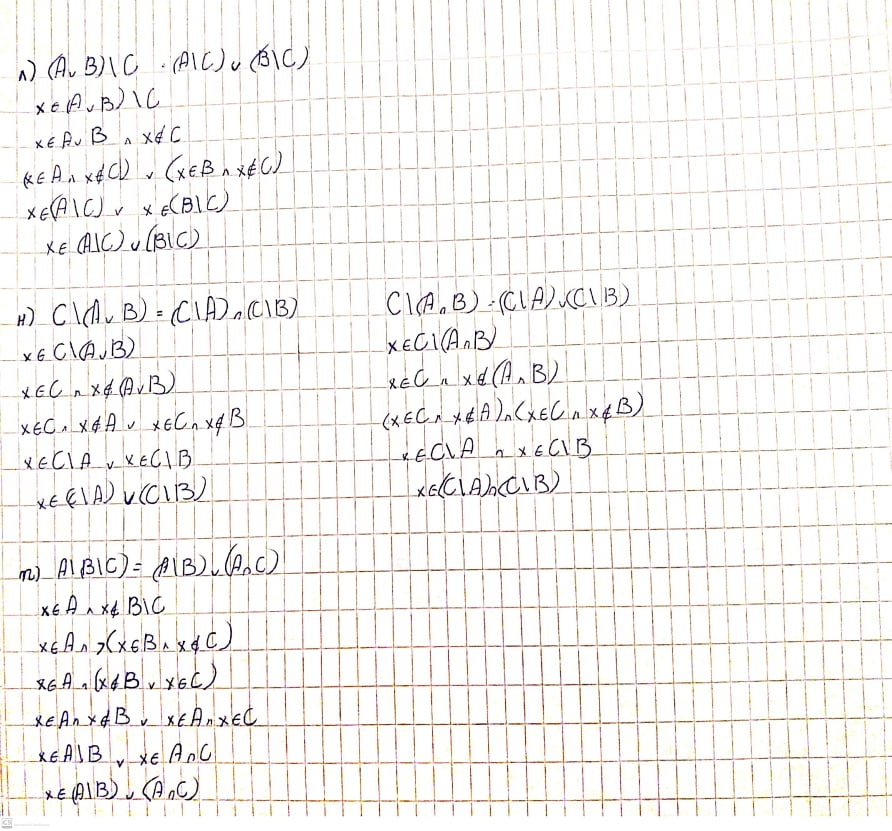 л) (A ∪ B)\C = (A\C) ∪ (B\C)
x ∈ (A ∪ B) \ C
x ∈ A ∪ B ∧ x ∉ C
(x ∈ A ∧ x ∉ C) ∨ (x ∈ B ∧ x ∉ C)
x ∈ (A\C) ∨ x ∈ (B\C)
x ∈ (A\C) ∪ (B\C)
н) C\(A ∪ B) = (C\A) ∩ (C\B)
x ∈ C\(A ∪ B)
x ∈ C ∧ x ∉ (A ∪ B)
x ∈ C ∧ x ∉ A ∨ x ∈ C ∧ x ∉ B
x ∈ C\A ∨ x ∈ C\B
x ∈ (C\A) ∪ (C\B)
C\(A ∩ B) = (C\A) ∪ (C\B)
x ∈ C\(A ∩ B)
x ∈ C ∧ x ∉ (A ∩ B)
(x ∈ C ∧ x ∉ A) ∧ (x ∈ C ∧ x ∉ B)
x ∈ C\A ∧ x ∈ C\B
x ∈ (C\A) ∩ (C\B)
m) A\(B\C) = (A\B) ∪ (A ∩ C)
x ∈ A ∧ x ∉ B\C
x ∈ A ∧ ¬(x ∈ B ∧ x ∉ C)
x ∈ A ∧ (x ∉ B ∨ x ∈ C)
x ∈ A ∧ x ∉ B ∨ x ∈ A ∧ x ∈ C
x ∈ A\B ∨ x ∈ A ∩ C
x ∈ (A\B) ∪ (A ∩ C)
CS